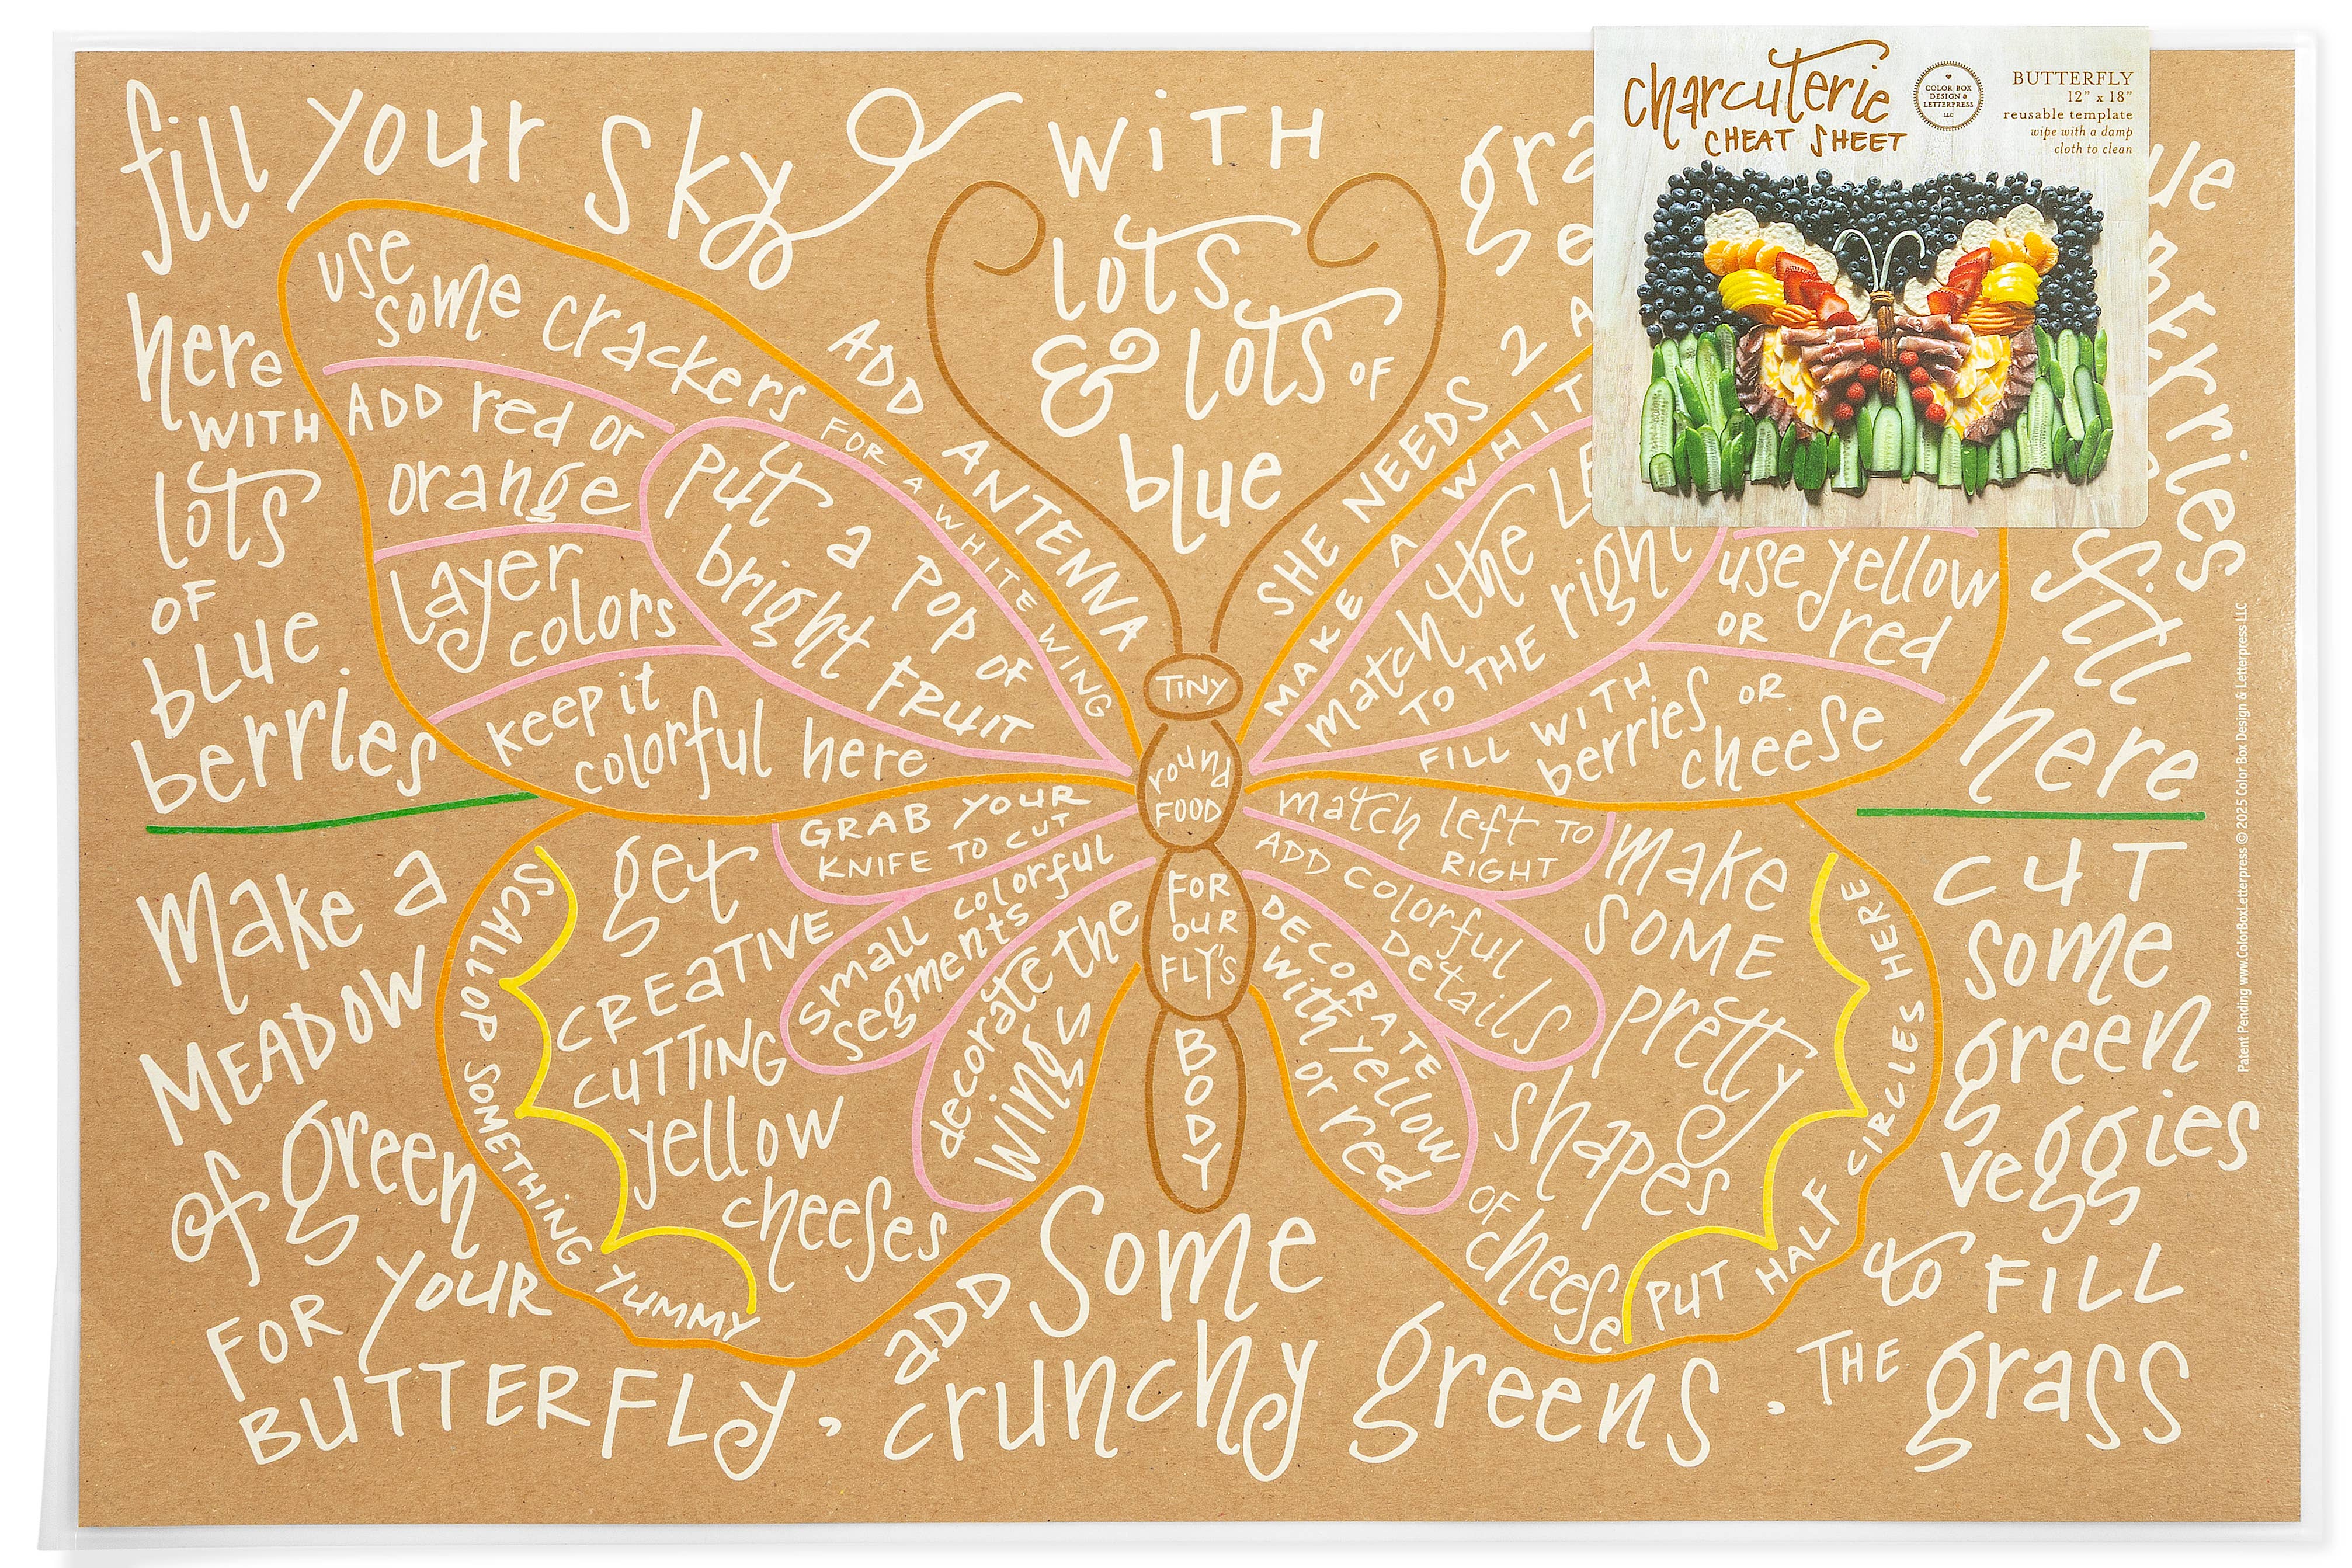 fill your sky
here
WITH
lots
OF
blue
berries
WITH
lots
& lots OF
blue
charcuterie
CHEAT SHEET
COLOR BOX
DESIGN &
LETTERPRESS
LLC
BUTTERFLY
12" x 18"
reusable template
wipe with a damp
cloth to clean
use
some crackers
FOR A WHITE WING
ADD ANTENNA
ADD red or
orange
layer
colors
keep it
colorful here
put a POP OF
bright FRUIT
SHE NEEDS 2
MAKE A WHIT
match the LE
TO THE right
use yellow
OR red
FILL WITH
berries OR
cheese
fill
here
TINY
round
FOOD
FOR
OUR
FLY'S
BODY
GRAB YOUR
KNIFE TO CUT
small colorful
segments
decorate the
wings
get
CREATIVE
CUTTING
yellow
cheeses
SCALLOP SOMETHING YUMMY
match left TO
RIGHT
ADD colorful
Details
DECORATE
with yellow
or red
make
SOME
pretty
shapes
OF
cheese
PUT HALF CIRCLES HERE
Make a
MEADOW
of green
FOR YOUR
BUTTERFLY,
ADD Some
crunchy greens.
CUT
some
green
veggies
to FILL
THE grass
Patent Pending www.ColorBoxLetterpress © 2025 Color Box Design & Letterpress LLC